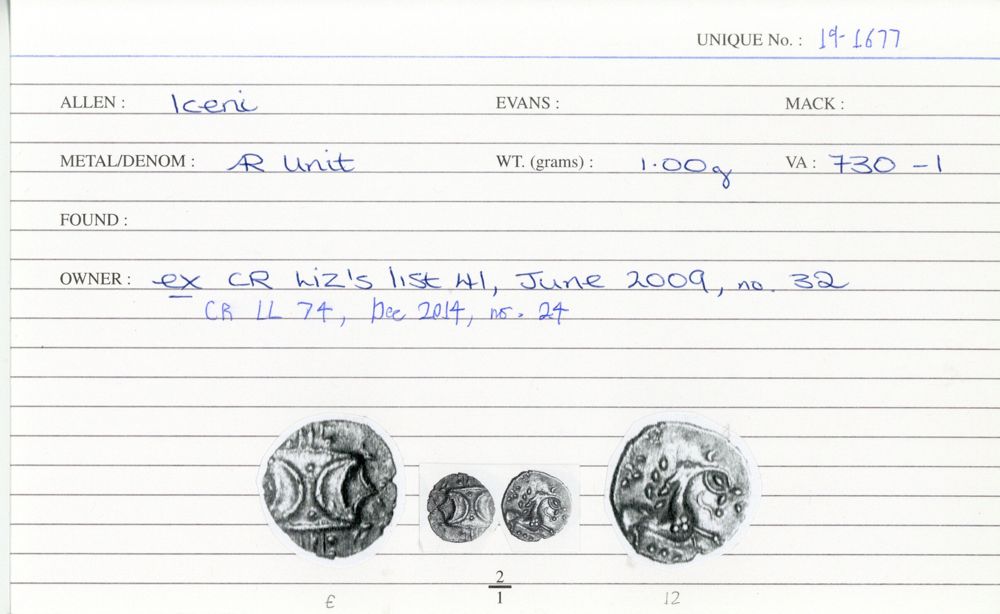 UNIQUE No. : 19-1677
ALLEN : Iceni EVANS : MACK :
METAL/DENOM : AR Unit WT. (grams) : 1.00g VA : 730 -1
FOUND :
OWNER : ex CR Liz's list 41, June 2009, no. 32
CR LL 74, Dec 2014, no. 24
2
1
E 12